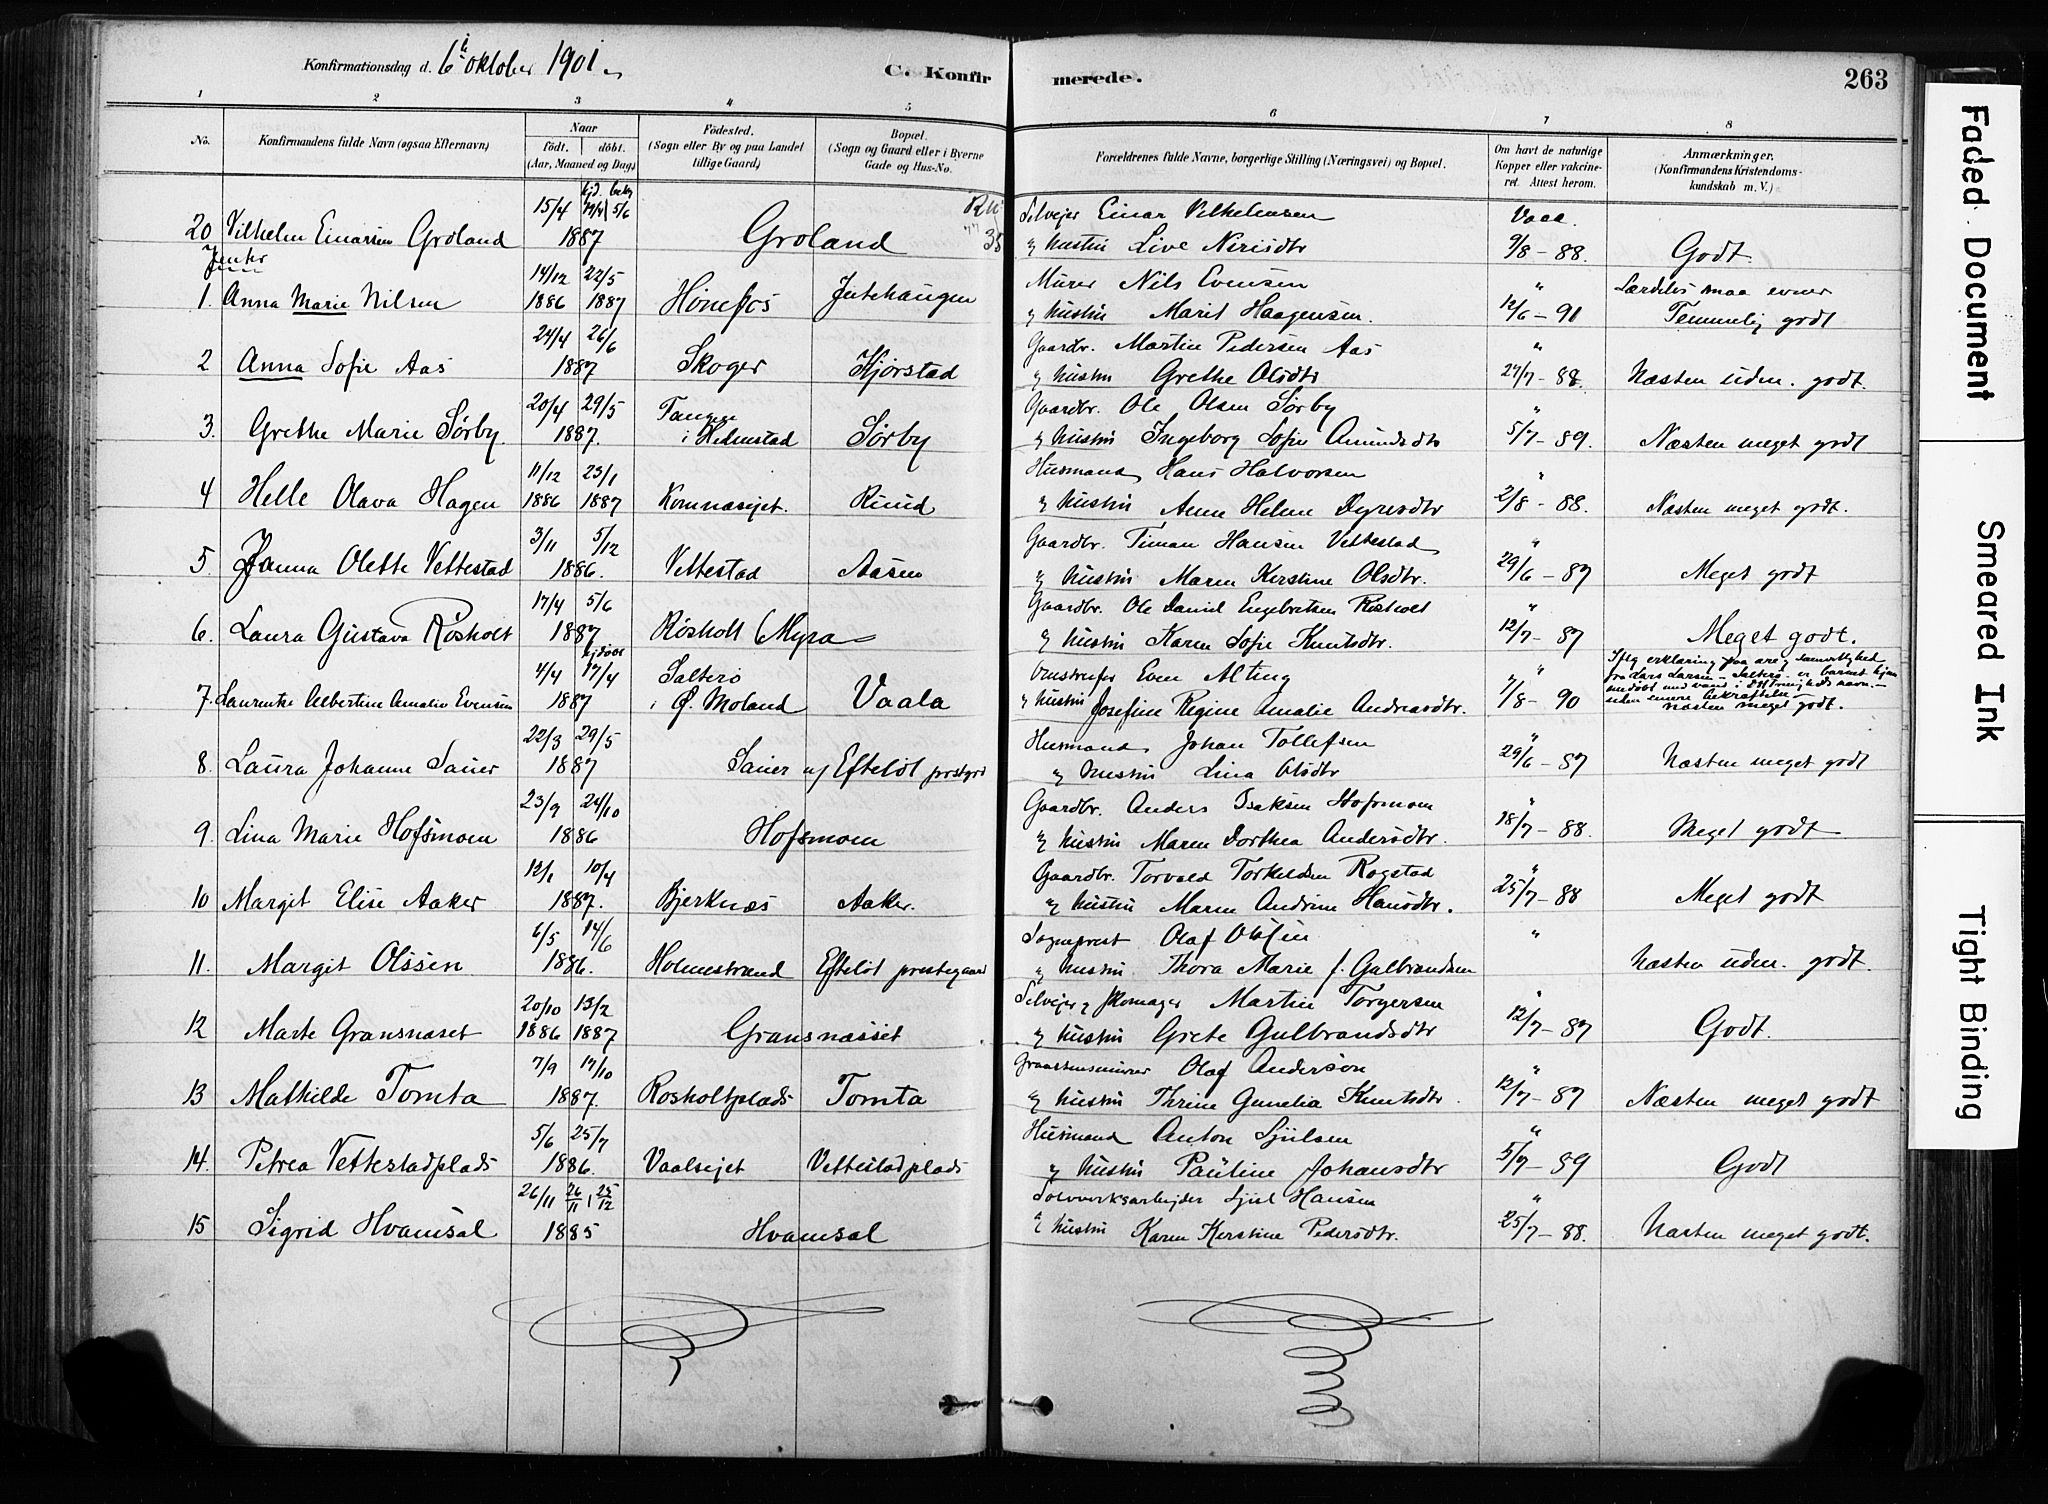 Konfirmationsdag d. 6te oktober 1901
C. Konfirmerede.
263
1 2 3 4 5 6 7 8
No.
Konfirmandens fulde Navn (ogsaa Efternavn)
Naar
født. døbt.
(Aar, Maaned og Dag)
Fødested.
(Sogn eller By og paa Landet
tillige Gaard)
Bopæl.
(Sogn og Gaard eller i Byerne
Gade og Hus-No.
Forældrenes fulde Navne, borgerlige Stilling (Næringsvei) og Bopæl.
Om havt de naturlige
Kopper eller vakcine-
ret. Attest herom.
Anmærkninger.
(Konfirmandens Kristendoms-
kundskab m. V.)
15/4 hjd. bekr 5/6 Selvejer Einar Vilhelmsen Vacc.
20 Vilhelm Einarsen Groland 1887 Groland 35 & hustru Live Nirisdtr 9/8 - 88. Godt
Jenter
14/12 22/5 Murer Nils Evensen " Særdeles smaa evner
1. Anna Marie Nilsen 1886 1887 Hønefos Jutehaugen & hustru Marit Haagensen. 12/6 - 91 Temmelig godt
24/4 26/6 Gaardbr. Martin Pedersen Aas "
2 Anna Sofie Aas 1887 Skoger Hjørstad & hustru Grethe Olsdtr 27/7 - 88. Næsten udm. godt.
20/4 29/5 Tangen Gaardbr. Ole Olsen Sørby "
3. Grethe Marie Sørby. 1887. i Hedenstad Sørby & hustru Ingeborg Sofie Amundsdtr 5/7 - 89. Næsten meget godt
11/12 23/1 Husmand Hans Halvorsen "
4 Helle Olava Hagen 1886 1887 Komnæsejet. Ruud & hustru Anne Helene Dyresdtr 2/8 - 88. Næsten meget godt.
3/11 5/12 Gaardbr. Timan Hansen Vettestad "
5. Janna Olette Vettestad 1886. Vettestad Aasen & hustru Maren Kerstine Olsdtr. 29/6 - 87 Meget godt
17/4 5/6 Gaardbr. Ole Daniel Engebretsen Røsholt "
6. Laura Gustava Røsholt 1887 Røsholt (Myra & hustru Karen Sofie Knutsdtr. 12/7 - 87 Meget godt.
4/4 hjdøbt 17/4 Salterø Even Alting " Iflg erklæring paa ære & samvittighed
fra Lars Larsen - Salterø - er barnet hjem-
7. Laurentse Albertine Amalie Evensen 1887 i Ø. Moland Vaala & hustru Josefine Regine Amalie Andreasdtr. 7/8 - 90 næsten meget godt.
22/3 29/5 Husmand Johan Tollefsen "
8. Laura Johanne Sauer 1887 Sauer u/ Efteløt prstgrd & hustru Lina Olsdtr 29/6 - 87 Næsten meget godt
23/9 24/10 Gaardbr. Anders Isaksen Hofsmoen "
9. Lina Marie Hofsmoen 1886 Hofsmoen & hustru Maren Dorthea Andersdtr. 18/7 - 88. Meget godt
12/1 10/4 Gaardbr. Torvald Torkeldsen Rogstad "
10 Margit Elise Aaker 1887. Bjerknæs Aaker. & hustru Maren Andrine Hansdtr. 25/7 - 88 Meget godt
6/5 14/6 Sogneprest Olaf Olssen "
11. Margit Olssen 1886. Holmestrand Efteløt prestegaard & hustru. Thora Marie f. Gulbrandsen Næsten udm. godt.
20/10 13/2 Selvejer & skomager Martin Torgersen "
12 Marte Gransnæset 1886 1887 Gransnæset & hustru Grete Gulbrandsdtr 12/7 - 87 Godt.
7/9 17/10 Graastensmurer Olaf Anderson "
13 Mathilde Tomta 1887. Rosholtplads Tomta & hustru Thrine Gunelia Knutsdtr. 12/7 - 87 Næsten meget godt
5/6 25/7 Husmand Anton Sjulsen "
14. Petrea Vettestadplads 1886. Vaalsejet Vettestadplads & hustru Pauline Johansdtr 5/7 - 89 Godt
26/11 26/11, 25/12 Sølvverksarbejder Sjul Hansen "
15 Sigrid Hvamsal 1885 Hvamsal & hustru Karen Kerstine Pedersdtr. 25/7 - 88. Næsten meget godt.
Faded Document
Smeared Ink
Tight Binding